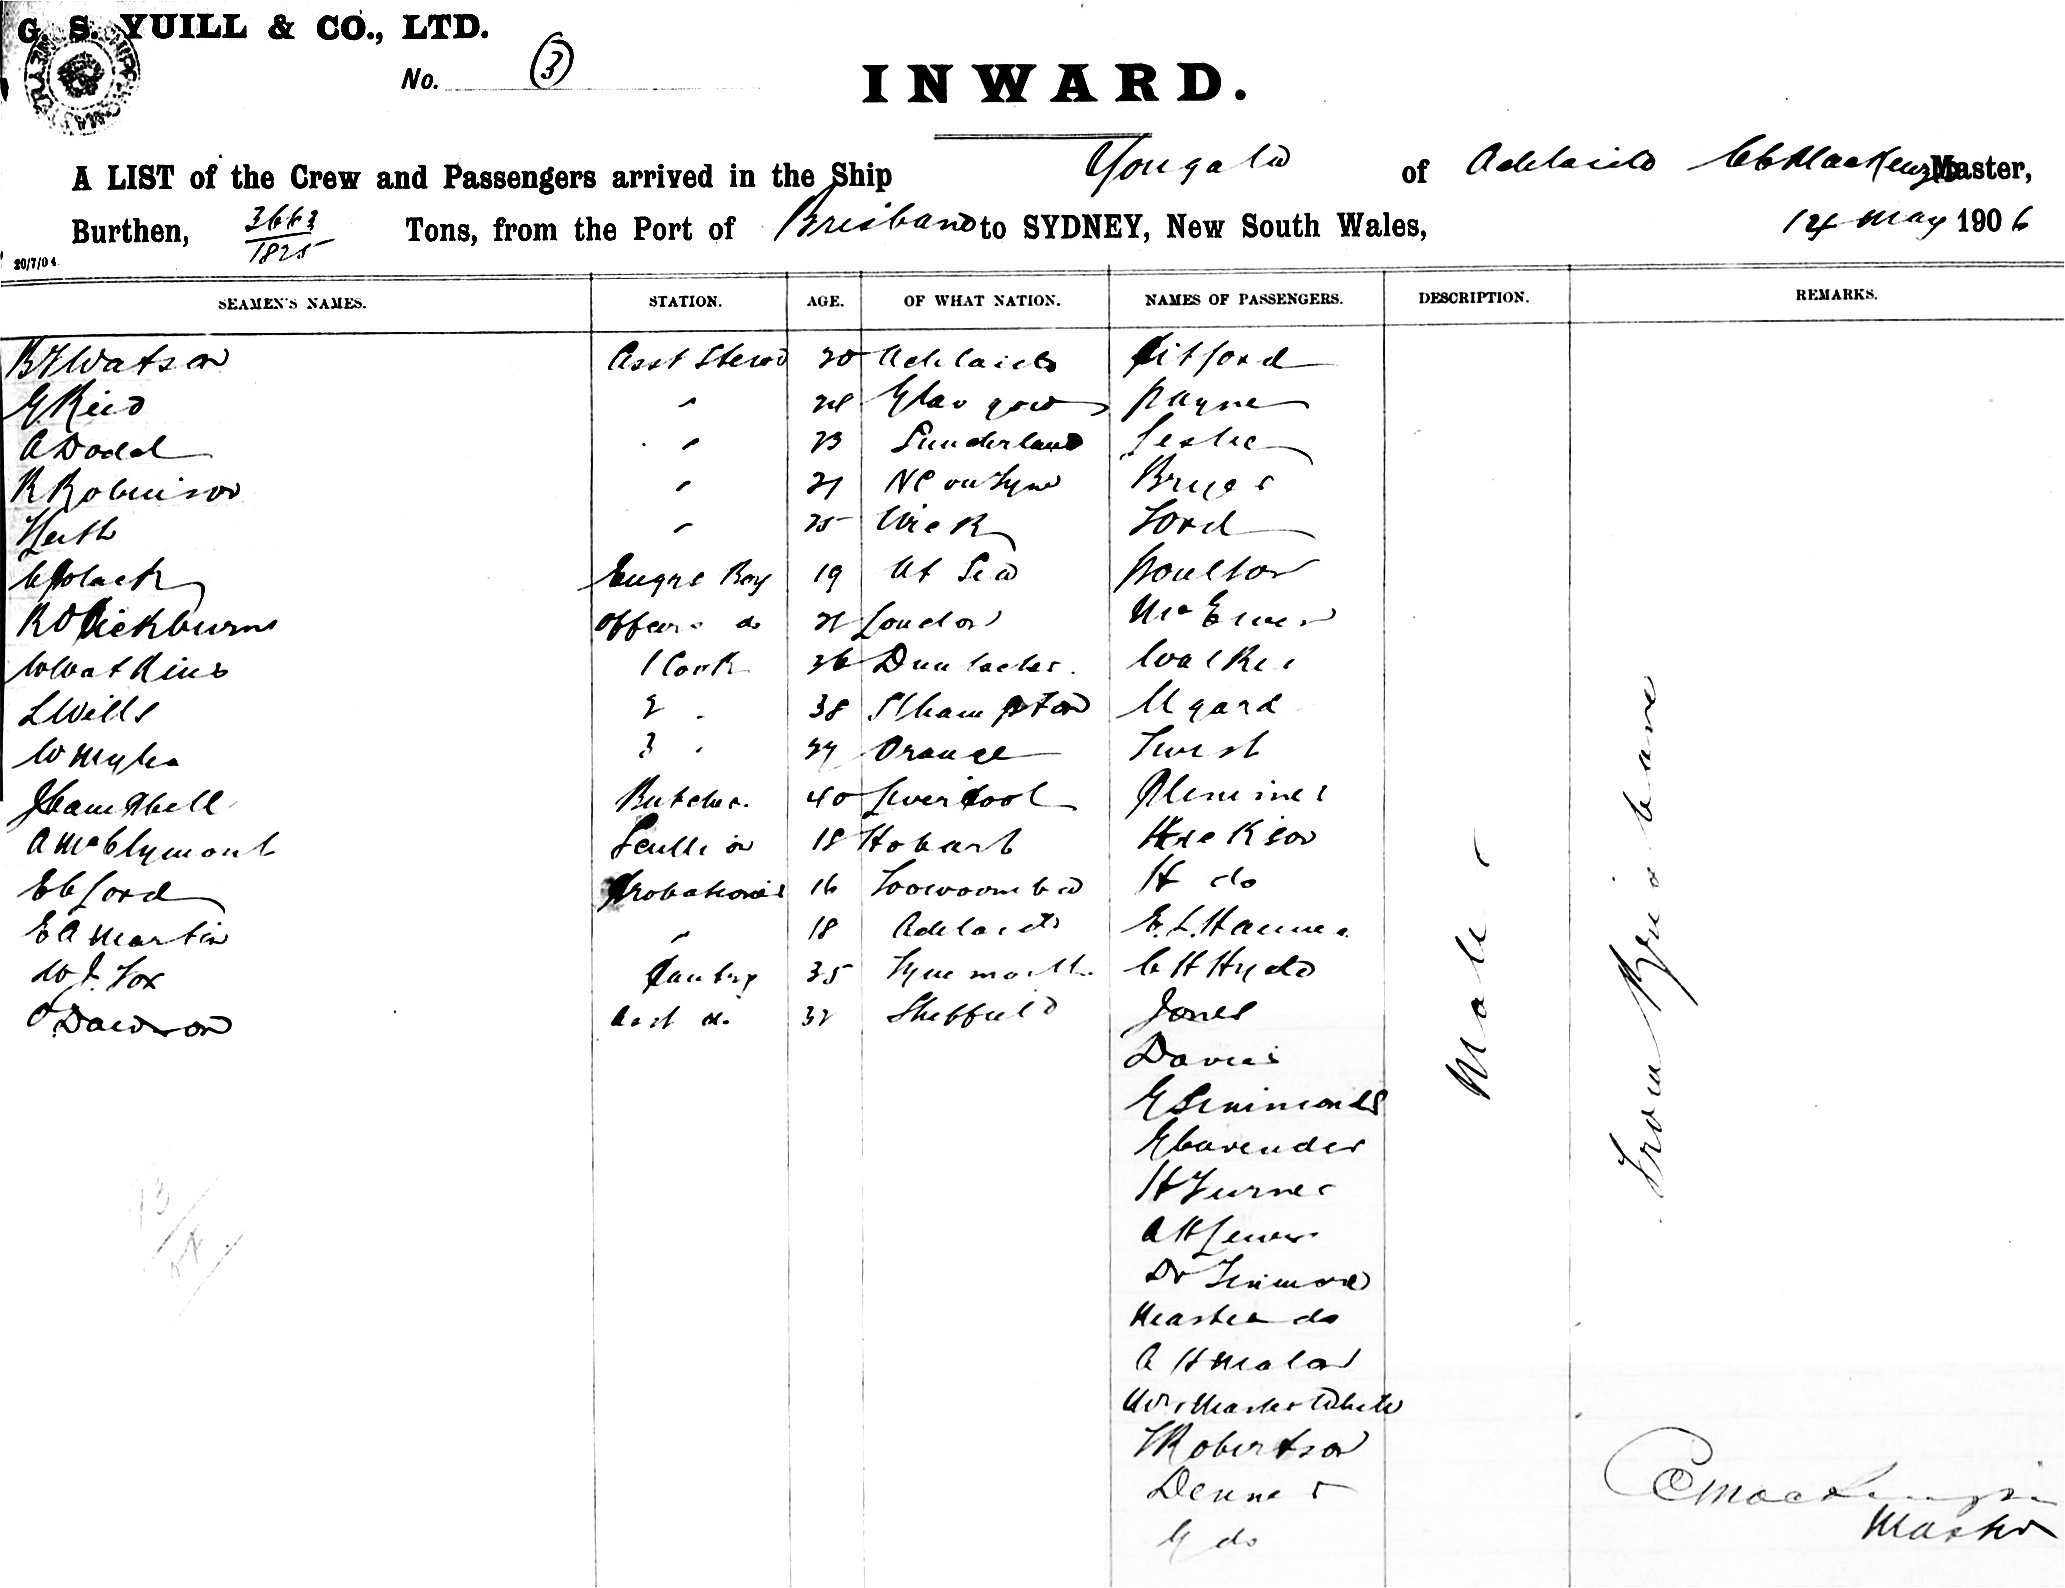 G. S. YUILL & CO., LTD.
No. (3)
INWARD.
A LIST of the Crew and Passengers arrived in the Ship Yongala of Adelaide C C MacKenzie Master,
Burthen, 3663/1825 Tons, from the Port of Brisbane to SYDNEY, New South Wales, 14 May 1906
20/7/04
SEAMEN'S NAMES. STATION. AGE. OF WHAT NATION. NAMES OF PASSENGERS. DESCRIPTION. REMARKS.
Watson Asst Stewd 20 Adelaide Pitford
G Reid " Glasgow Payne
A Dodd " 23 Sunderland Leslie
R Robinson " 21 NC on Tyne
Keith " 25 Wick Ford
Black Engrs Boy 19 At Sea Poulton
Officers do London
W Watkins 1 Cook 36 Walker
L Wills 2 " 38 SHampton
W Myles 3 " Orange Twist
J Campbell Butcher 40 Liverpool
A McClymont Scullion 18 Hobart
E C Ford 16 Toowoomba H do
E A Martin " 18 Adelaide
W J. Fox Pantry 35 Tynemouth C H Hyde
Dawson Asst do 32 Sheffield Jones
Davies
G Simmonds
G Cavender
H Turner
A H Lewis
Dr
Master do
A H Malon
Mr & Master White
Robertson
Denner
G do
Male
From Brisbane
C MacKenzie
Master